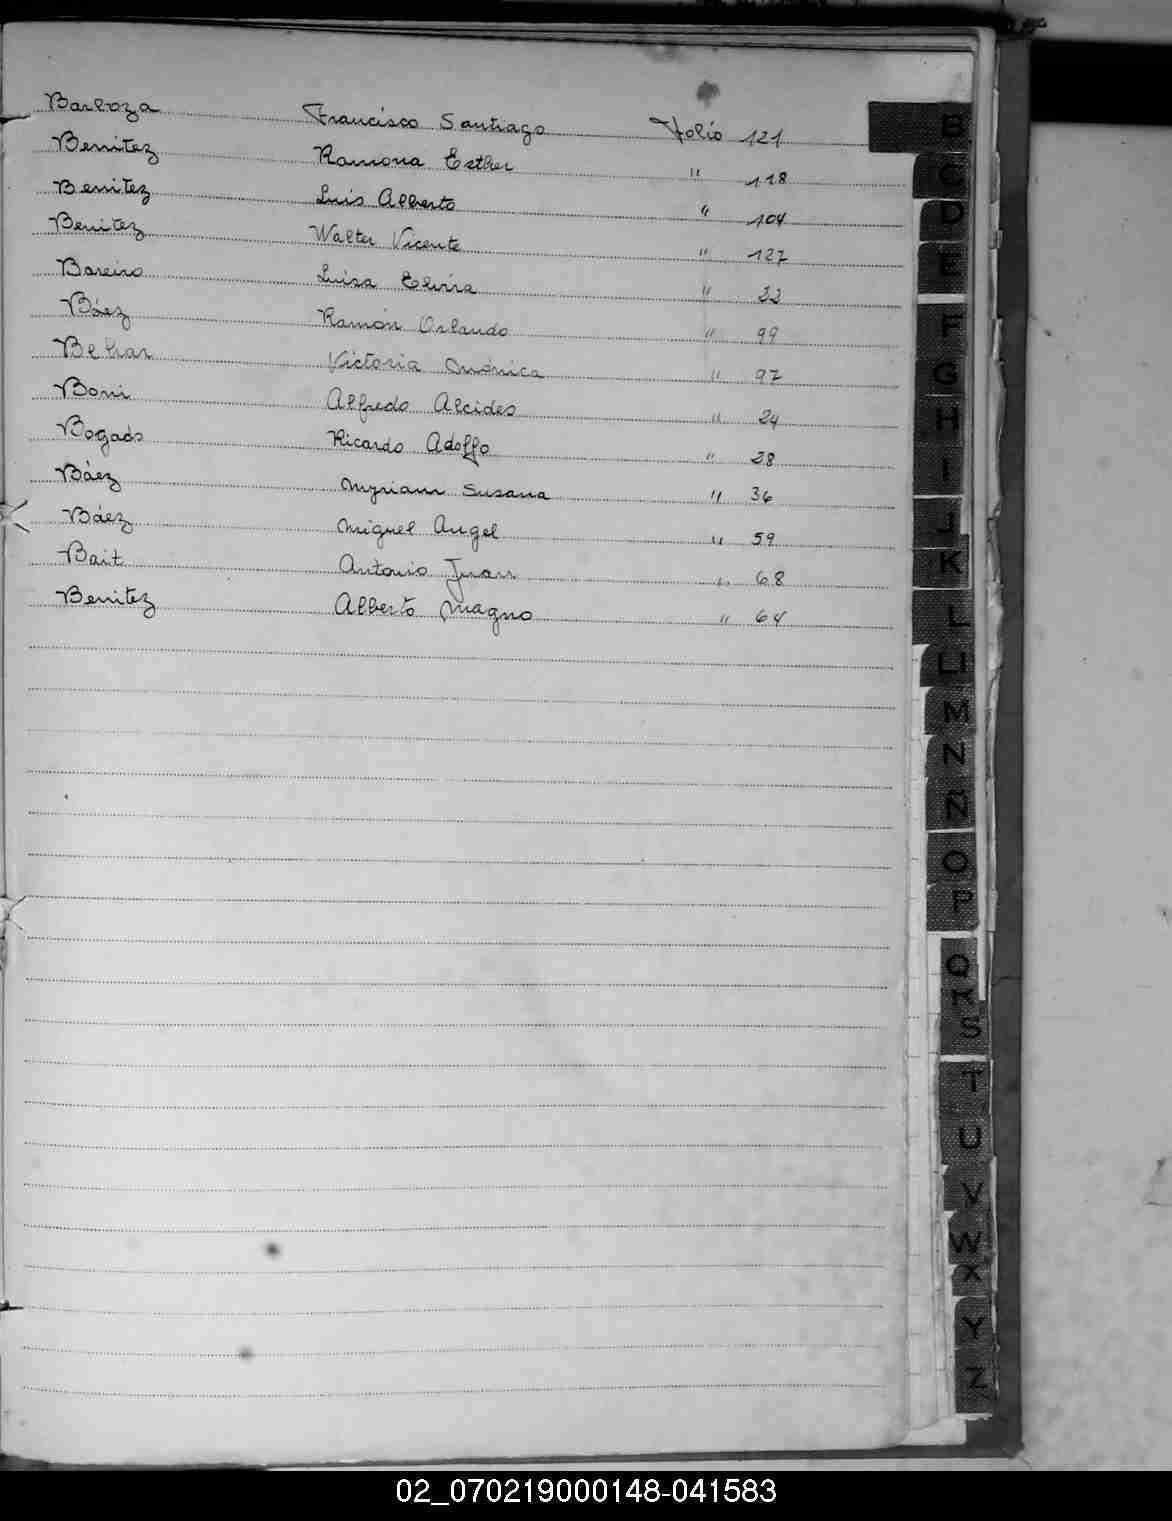 Barboza Francisco Santiago Folio 121
Benitez Ramona Esther " 118
Benitez Luis Alberto " 104
Benitez Walter Vicente " 127
Bareiro Luisa Elvira " 33
Báez Ramón Orlando " 99
Victoria Mónica " 97
Boni Alfredo Alcides " 24
Bogado Ricardo Adolfo " 28
Báez Myriam Susana " 36
Báez Miguel Angel " 59
Bait Antonio Juan " 68
Benitez Alberto Magno " 64
B
C
D
E
F
G
H
I
J
K
L
LL
M
N
Ñ
O
P
Q
R
S
T
U
V
W
X
Y
Z
02_070219000148-041583